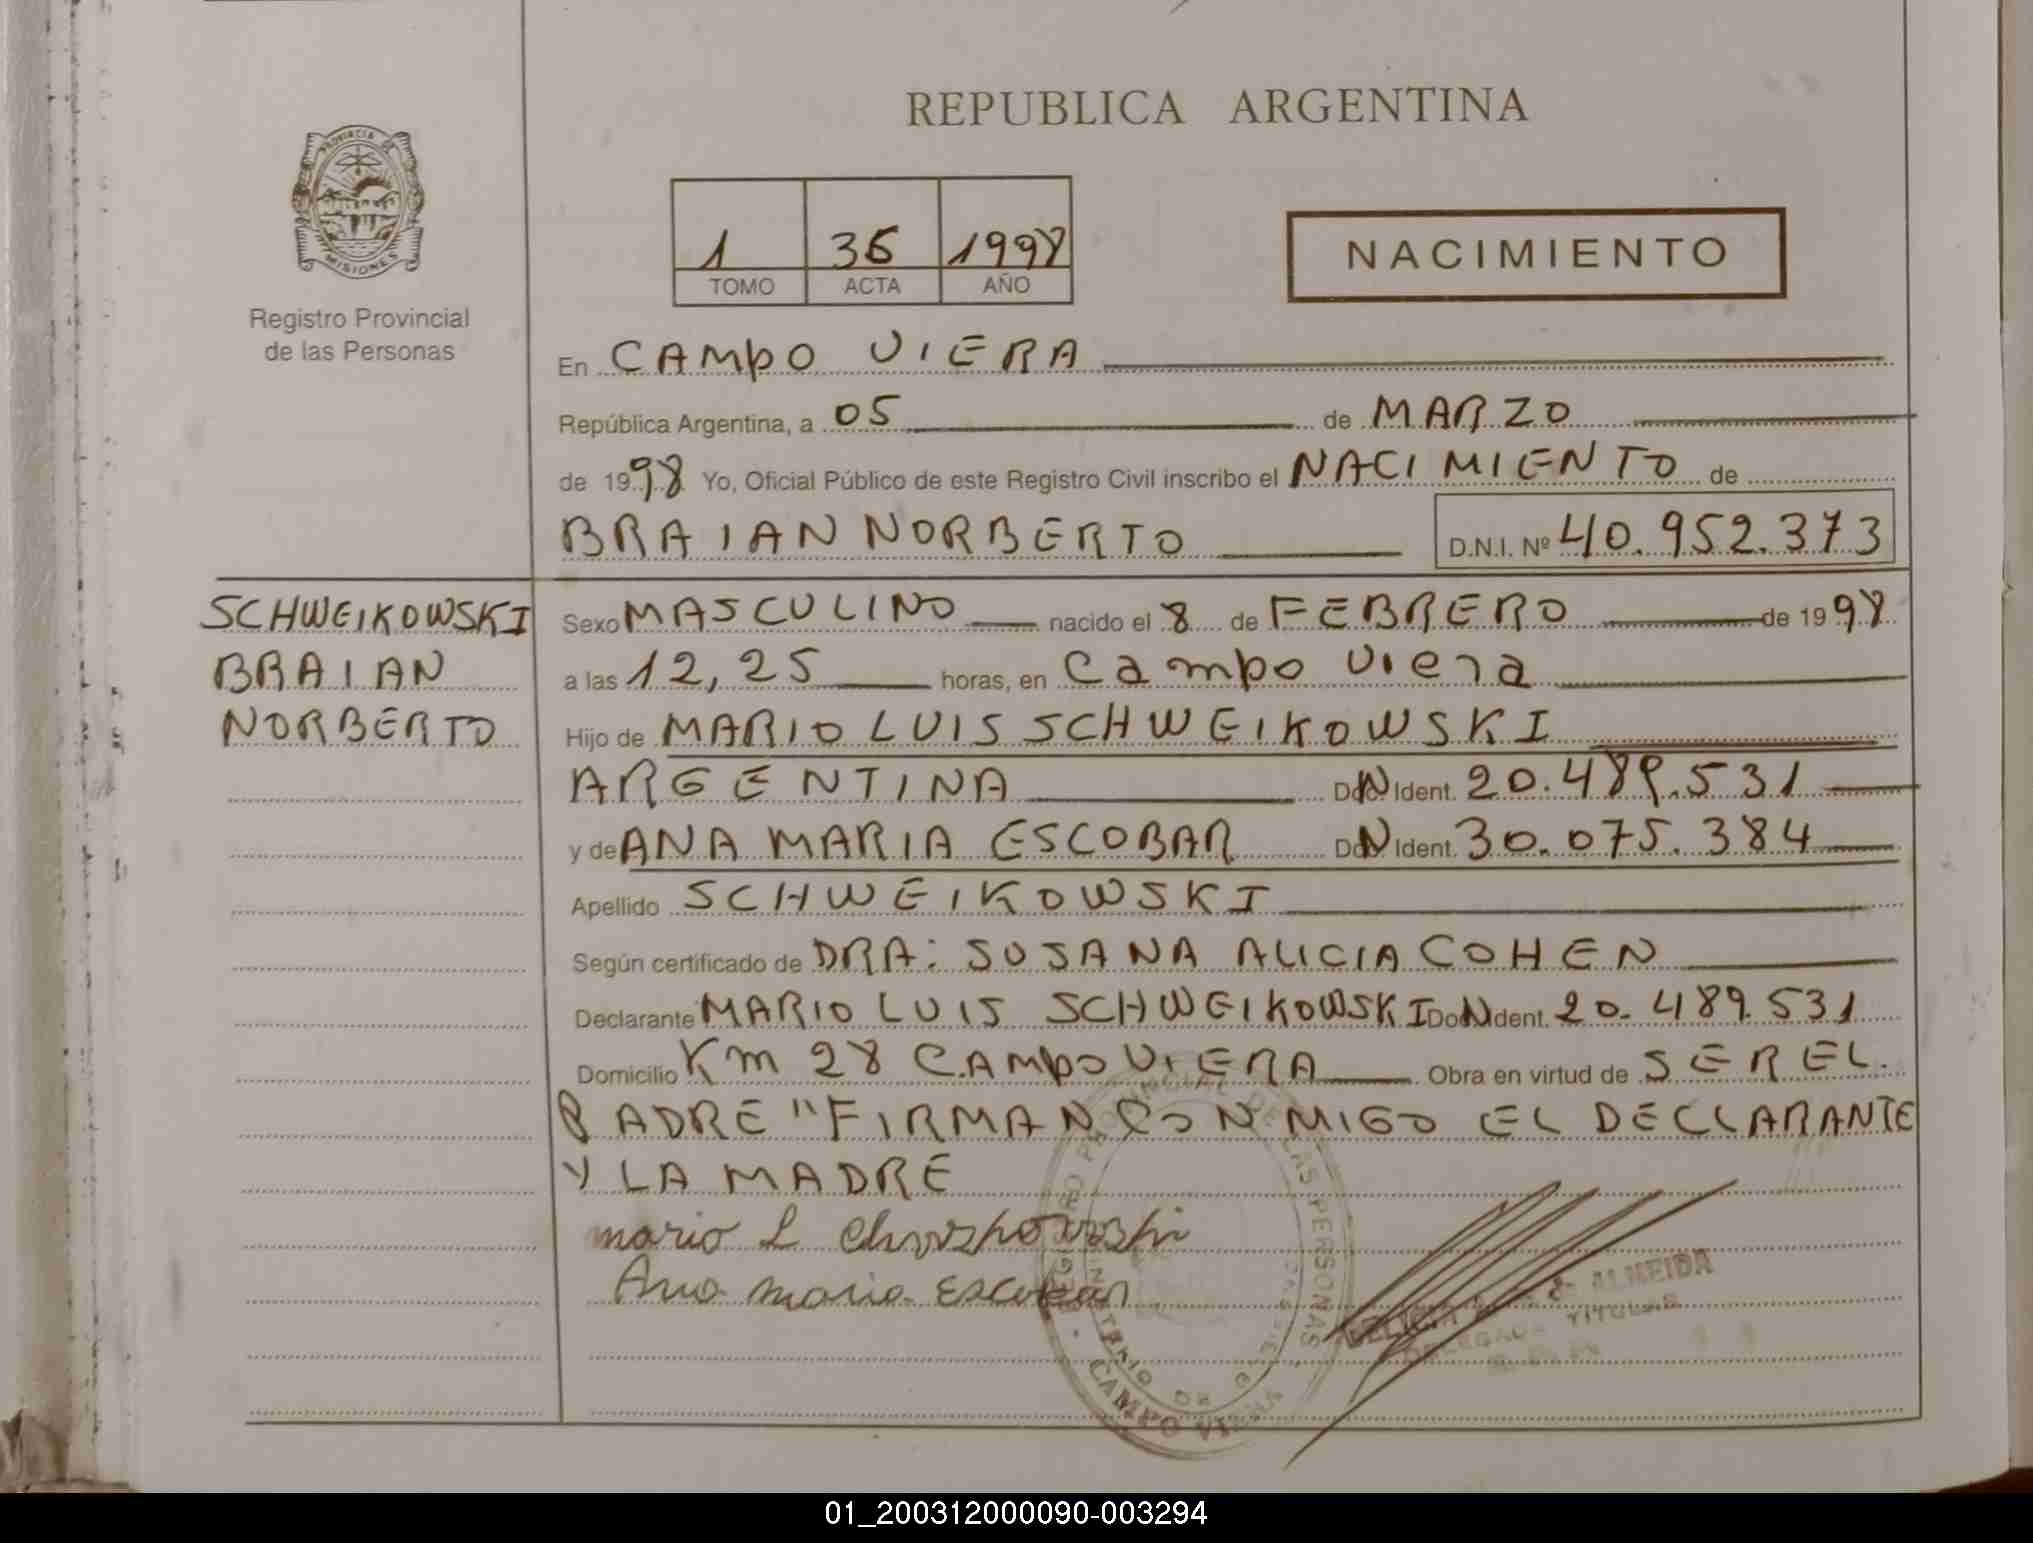 REPUBLICA ARGENTINA
PROVINCIA DE
MISIONES
Registro Provincial
de las Personas
1 36 1998
TOMO ACTA AÑO
NACIMIENTO
En CAMPO VIERA
República Argentina, a 05 de MARZO
de 1998 Yo, Oficial Público de este Registro Civil inscribo el NACIMIENTO de
BRAIAN NORBERTO D.N.I. Nº 40.952.373
SCHWEIKOWSKI
BRAIAN
NORBERTO
Sexo MASCULINO nacido el 8 de FEBRERO de 1998
a las 12,25 horas, en Campo Viera
Hijo de MARIO LUIS SCHWEIKOWSKI
ARGENTINA Ident. 20.489.531
y de ANA MARIA ESCOBAR Ident. 30.075.384
Apellido SCHWEIKOWSKI
Según certificado de DRA: SUSANA ALICIA COHEN
Declarante MARIO LUIS SCHWEIKOWSKI Ident. 20.489.531
Domicilio Km 28 CAMPO VIERA Obra en virtud de SER EL
PADRE "FIRMAN CONMIGO EL DECLARANTE
Y LA MADRE
mario L
Ana maria Escobar
REGISTRO PROVINCIAL DE LAS PERSONAS
CAMPO VIERA
DE ALMEIDA
DELEGADA TITULAR
01_200312000090-003294